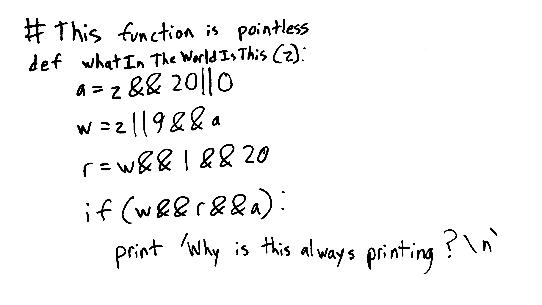 # This function is pointless
def whatInTheWorldIsThis(z):
a = z && 20||0
w = z||9&&a
r = w&&1&&20
if (w&&r&&a):
print 'Why is this always printing?\n'